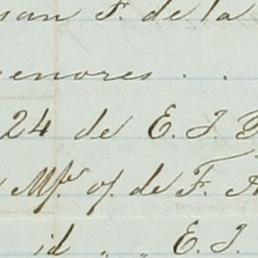 san F. de la
enores . .
24 de E. J.
Mps. of. de F.
id " " E. J.